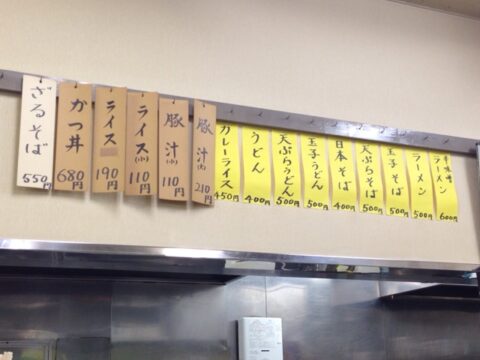 ざるそば 550
かつ丼 680
ライス 190
ライス(小) 110
豚汁(小) 110
豚汁(大) 210
カレーライス 450
うどん 400
天ぷらうどん 500
玉子うどん 500
日本そば 400
天ぷらそば 500
玉子そば 500
ラーメン 500
ラーメン 600